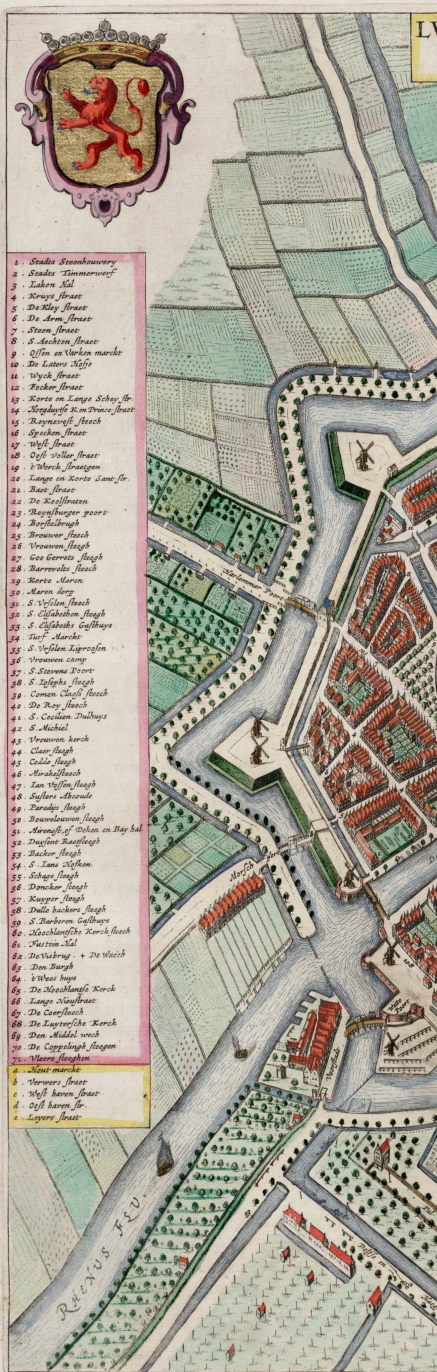 LV
1. Stadts Steenhouwery
2. Stadts Timmerwerf
3. Laken Hal
4. Kruys straet
5. De Kley straet
6. De Arm straet
7. Steen straet
8. S. Aechten straet
9. Ossen en Varken marckt
10. De Laters Hofje
11. Wyck straet
12. Focker straet
13. Korte en Lange Schey str.
14. Hoogduytse K en Prince straet
15. Reynevest steech
16. Specken straet
17. West straet
18. Oost Voller straet
19. t Werck straetgen
20. Lange en Korte Sant str.
21. Baet straet
22. De Koolstraten
23. Reynsburger poort
24. Borstelbrugh
25. Brouwer steech
26. Vrouwen steegh
27. Goe Gerrets steegh
28. Barrevelts steech
29. Korte Maren
30. Maren dorp
31. S. Vrselen steech
32. S. Elisabethen steegh
33. S. Elisabeths Gasthuys
34. Turf Marckt
35. S. Vrselen Liproosen
36. Vrouwen camp
37. S. Stevens Poort
38. S. Iosephs steegh
39. Comen Claess steech
40. De Roy steech
41. S. Cecilien Dulhuys
42. S. Michiel
43. Vrouwen kerck
44. Claer steegh
45. Cedde steegh
46. Mirakelsteech
47. Ian Vossen steegh
48. Susters Abcoude
49. Paradys steegh
50. Bouwelouwen steegh
51. of Deken en Bay hal
52. Duysent Raetsteegh
53. Backer steegh
54. S. Ians Hofken
55. Schage steegh
56. Doncker steegh
57. Kuyper steegh
58. Dulle backers steegh
59. S. Barberen Gasthuys
60. Hoochlantsche Kerck steech
61. Fustein Hal
62. De Visbrug. + De Waech
63. Den Burgh
64. 't Wees huys
65. De Hoochlantse Kerck
66. Lange Nieustraet
67. De Coersteech
68. De Luytersche Kerck
69. Den Middel wech
70. De Coppelingh steegen
71. Vleere steeghen
a. Hout marckt
b. Verwers straet
c. West haven straet
d. Oost haven str.
e. Loyers straet
Haerlemmer Poort
Morsch
Witte Poort
RHENUS FLU.